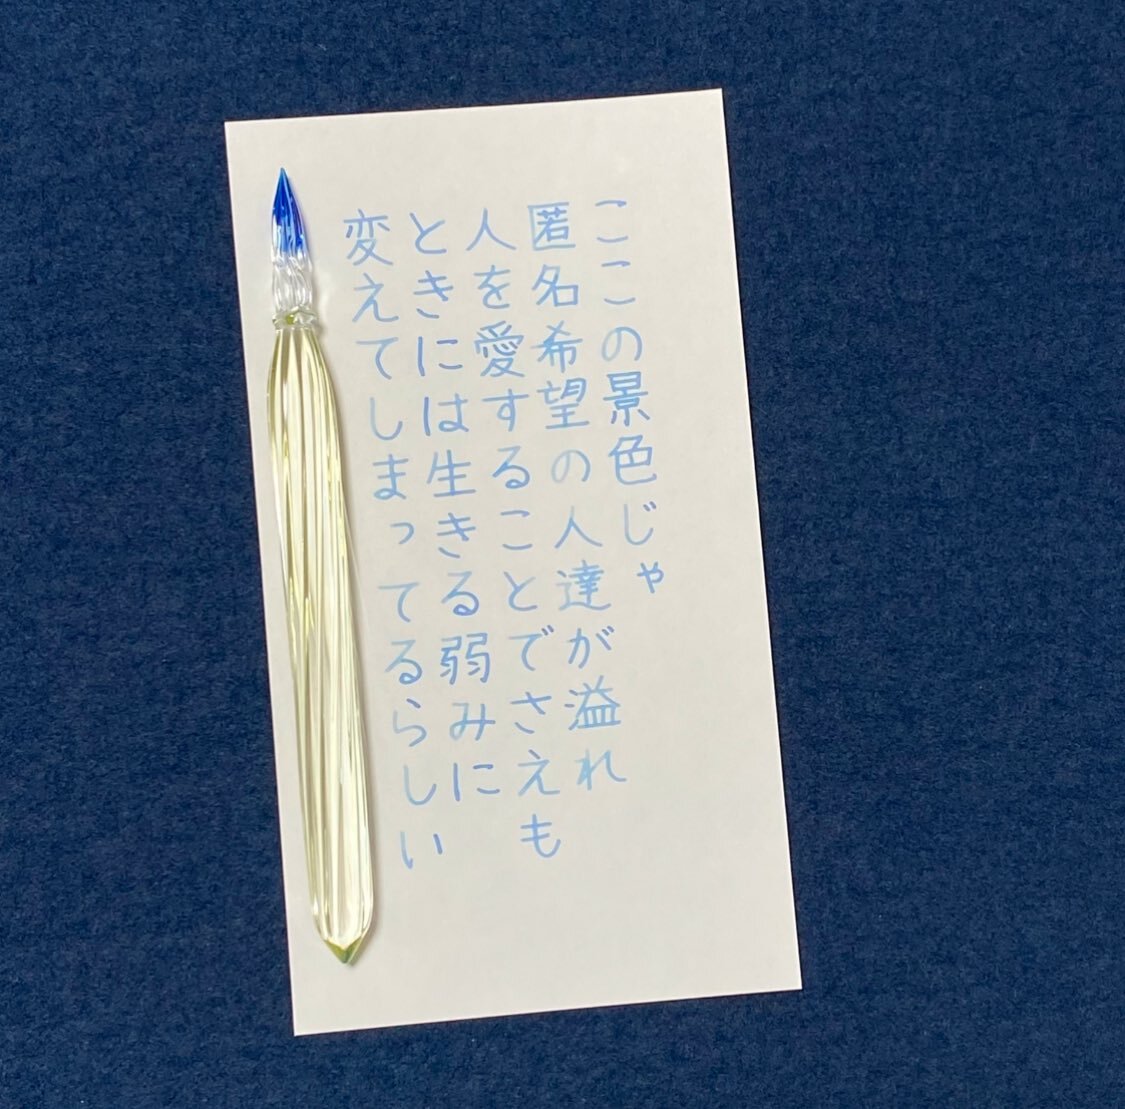 ここの景色じゃ
匿名希望の人達が溢れ
人を愛することでさえも
ときには生きる弱みに
変えてしまってるらしい